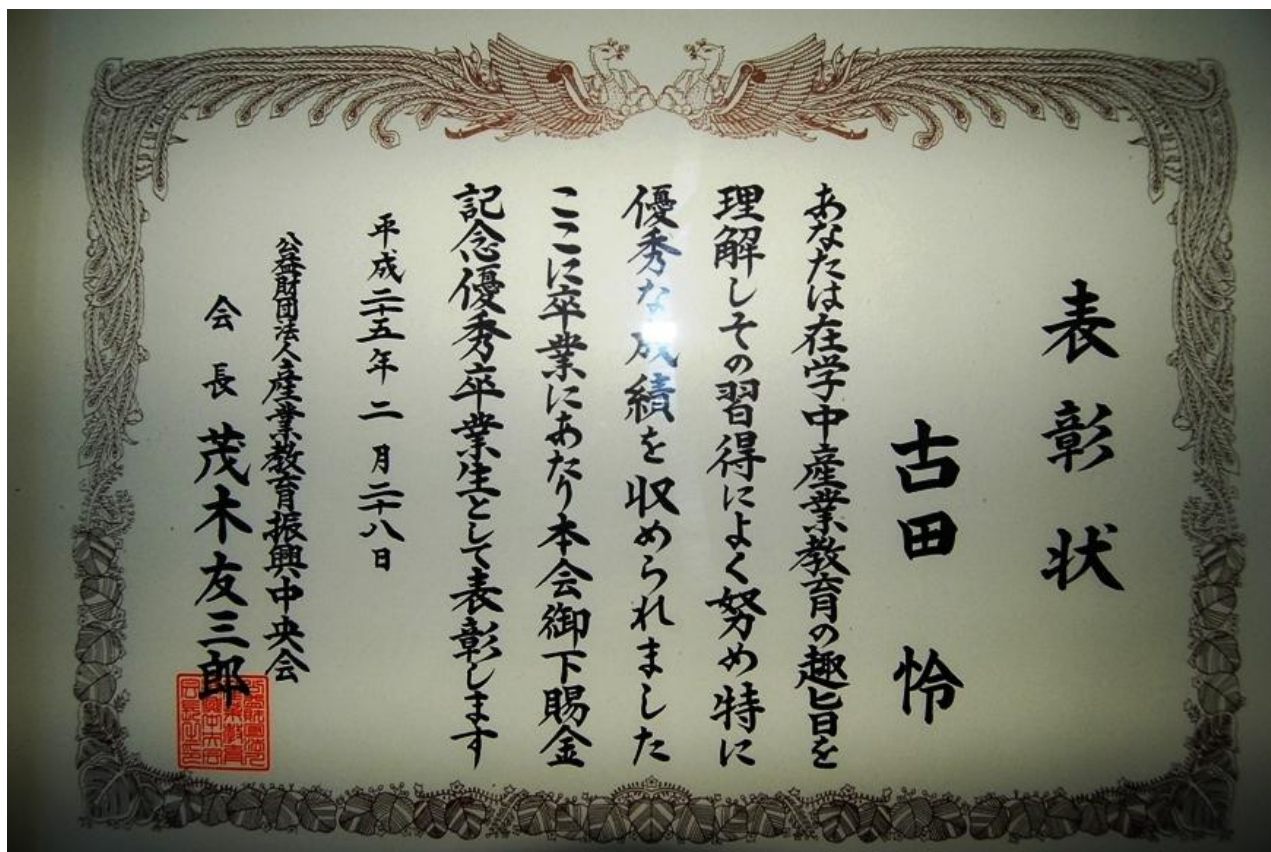 表彰状
古田怜
あなたは在学中産業教育の趣旨を
理解しその習得によく努め特に
優秀な成績を収められました
ここに卒業にあたり本会御下賜金
記念優秀卒業生として表彰します
平成二十五年二月二十八日
公益財団法人産業教育振興中央会
会長 茂木友三郎